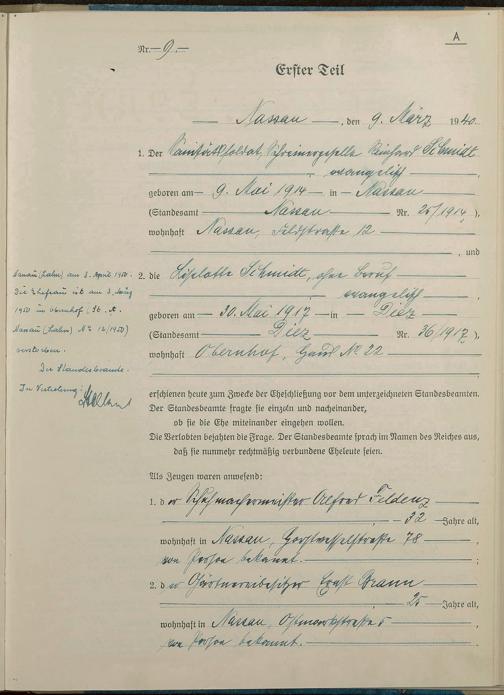 A
Nr. 9.
Erster Teil
Nassau, den 9. März 1940
1. Der Sanitätssoldat, Schreinergeselle Reinhard Schmidt
evangelisch
geboren am 9. Mai 1914 in Nassau
(Standesamt Nassau Nr. 25/1914),
wohnhaft Nassau, Feldstraße 12
, und
2. die Liselotte Schmidt, ohne Beruf
evangelisch
geboren am 30. Mai 1917 in Diez
(Standesamt Diez Nr. 36/1917),
wohnhaft Obernhof, Haus Nr. 22
Nassau (Lahn) am 3. April 1950.
Die Ehefrau ist am 3. März
1950 in Obernhof (St. A.
Nassau (Lahn) Nr. 12/1950)
verstorben.
Der Standesbeamte.
In Vertretung:
erschienen heute zum Zwecke der Eheschließung vor dem unterzeichneten Standesbeamten.
Der Standesbeamte fragte sie einzeln und nacheinander,
ob sie die Ehe miteinander eingehen wollen.
Die Verlobten bejahten die Frage. Der Standesbeamte sprach im Namen des Reiches aus,
daß sie nunmehr rechtmäßig verbundene Eheleute seien.
Als Zeugen waren anwesend:
1. der Schuhmachermeister Alfred Feldenz
32 Jahre alt,
wohnhaft in Nassau, Horstwesselstraße 78
von Person bekannt. ;
2. der Gärtnereibesitzer Ernst Braun
25 Jahre alt,
wohnhaft in Nassau, Ostmarkstraße 5
von Person bekannt.